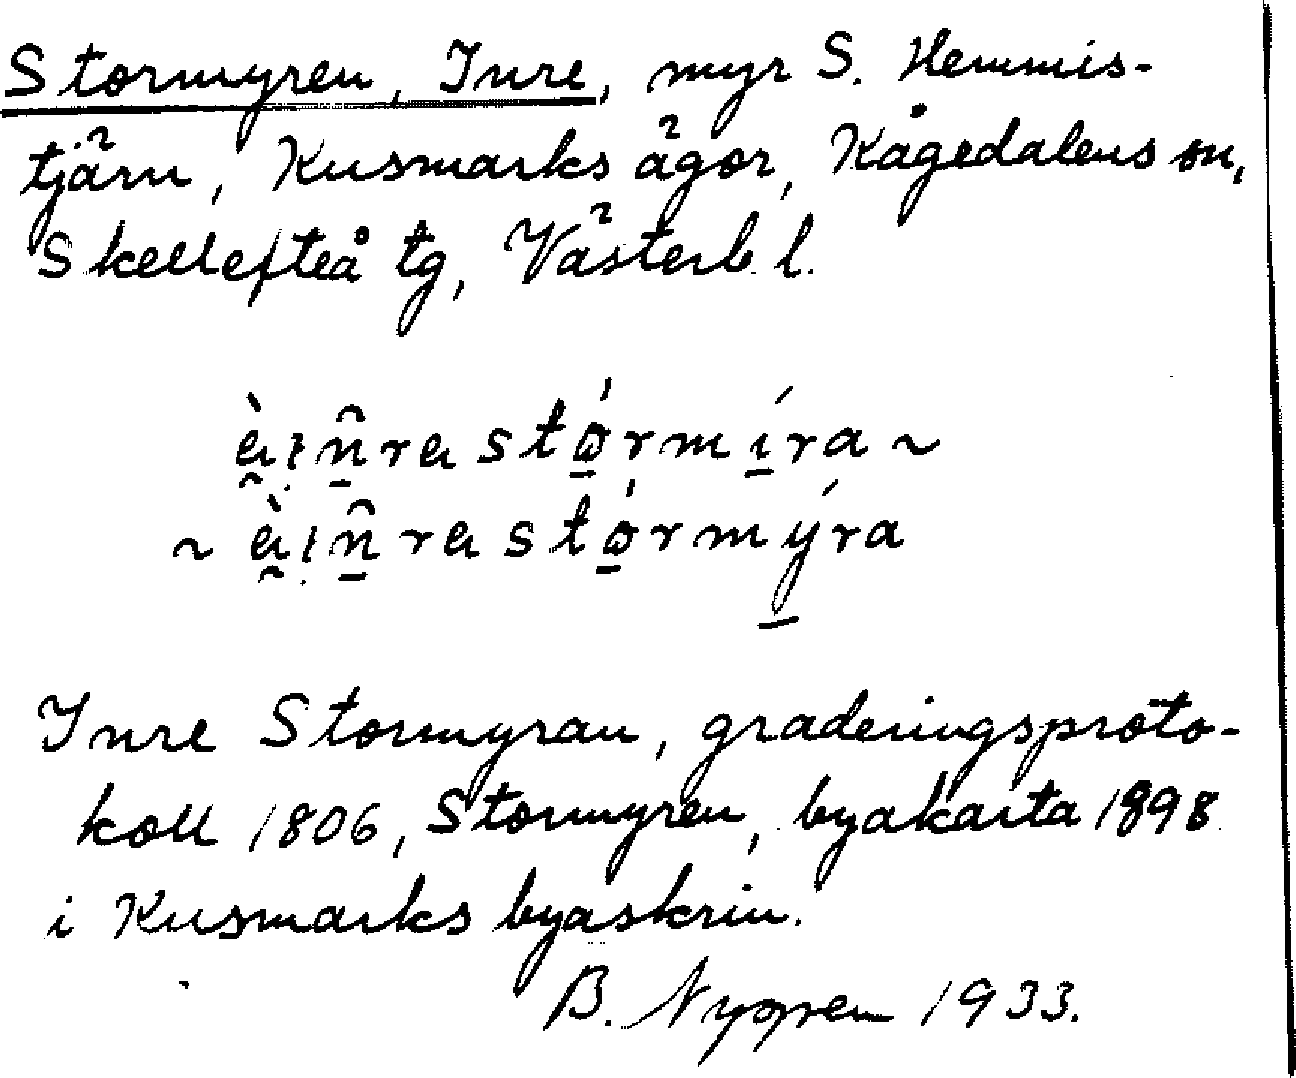 Stormyren, Inre, myr S. Hemmis-
tjärn, Kusmarks ägor, Kågedalens sn,
Skellefteå tg, Västerb. l.
Inre Stormyran, graderingsproto-
koll 1806, Stormyren, byakarta 1898
i Kusmarks byaskrin.
B. Nygren 1933.